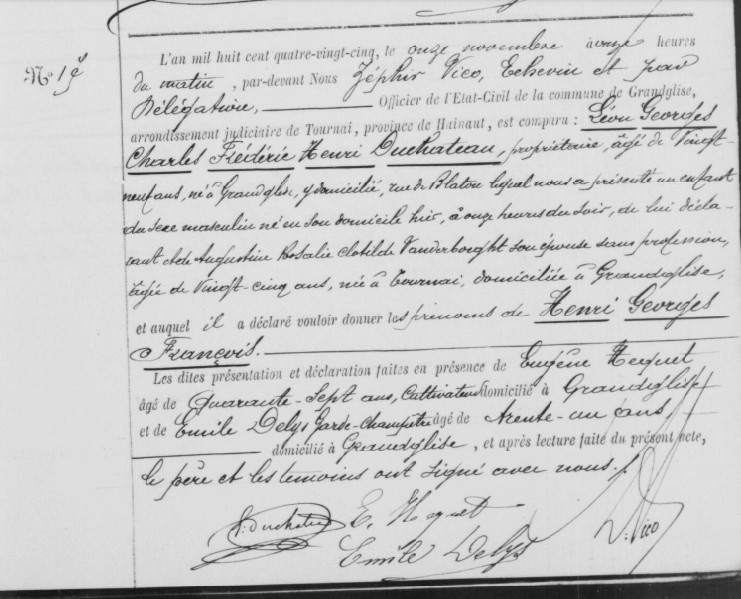 N° 19
L'an mil huit cent quatre-vingt-cinq, le onze novembre à onze heures
du matin, par-devant Nous Zéphir Vico, Echevin et par
Délégation, Officier de l'Etat-Civil de la commune de Grandglise,
arrondissement judiciaire de Tournai, province de Hainaut, est comparu : Léon Georges
Charles Frédéric Henri Duchateau, propriétaire, âgé de vingt-
neuf ans, né à Grandglise, y domicilié, rue de Blaton lequel nous a présenté un enfant
du sexe masculin né en son domicile hier, à onze heures du soir, de lui décla-
rant et de Augustine Rosalie Clotilde Vanderborght son épouse sans profession,
âgée de vingt-cinq ans, née à Tournai, domiciliée à Grandglise,
et auquel il a déclaré vouloir donner les prénoms de Henri Georges
François.
Les dites présentation et déclaration faites en présence de Eugène Hecquet
âgé de quarante-sept ans, cultivateur domicilié à Grandglise
et de Emile Delys Garde-Champêtre âgé de trente-un ans
domicilié à Grandglise, et après lecture faite du présent acte,
le père et les témoins ont signé avec nous.
Duchateau E. Hequet
Emile Delys Z. Vico